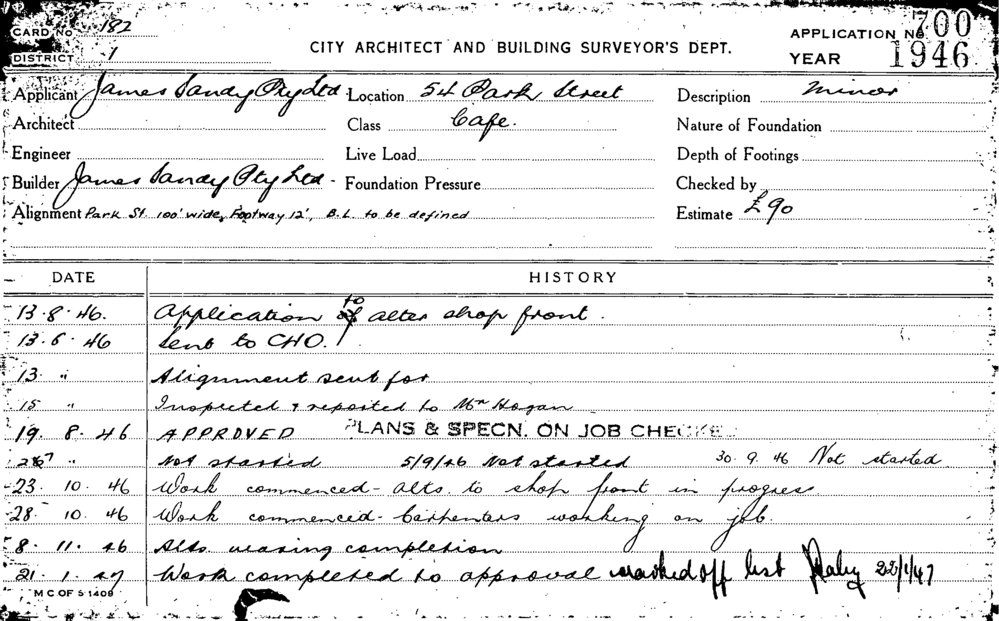 CARD No 182
CITY ARCHITECT AND BUILDING SURVEYOR'S DEPT.
APPLICATION No 700
DISTRICT 1
YEAR 1946
Applicant James Sandy Pty Ltd. Location 54 Park Street Description Minor
Architect Class Cafe. Nature of Foundation
Engineer Live Load Depth of Footings
Builder James Sandy Pty Ltd. Foundation Pressure Checked by
Alignment Park St. 100' wide, Footway 12', B.L. to be defined Estimate £90
DATE HISTORY
13.8.46. Application to alter shop front.
13.8.46 Sent to CHO.
13 " Alignment sent for
15 " Inspected & reported to Mr Hogan
19. 8. 46 APPROVED PLANS & SPECN. ON JOB CHECKED
" Not started 5/9/46 Not started 30. 9. 46 Not started
23. 10. 46 Work commenced - alts. to shop front in progress
28. 10. 46 Work commenced - Carpenters working on job.
8. 11. 46 Alts. nearing completion
21. 1. 47 Work completed to approval marked off list 22/1/47
M C OF S 1409